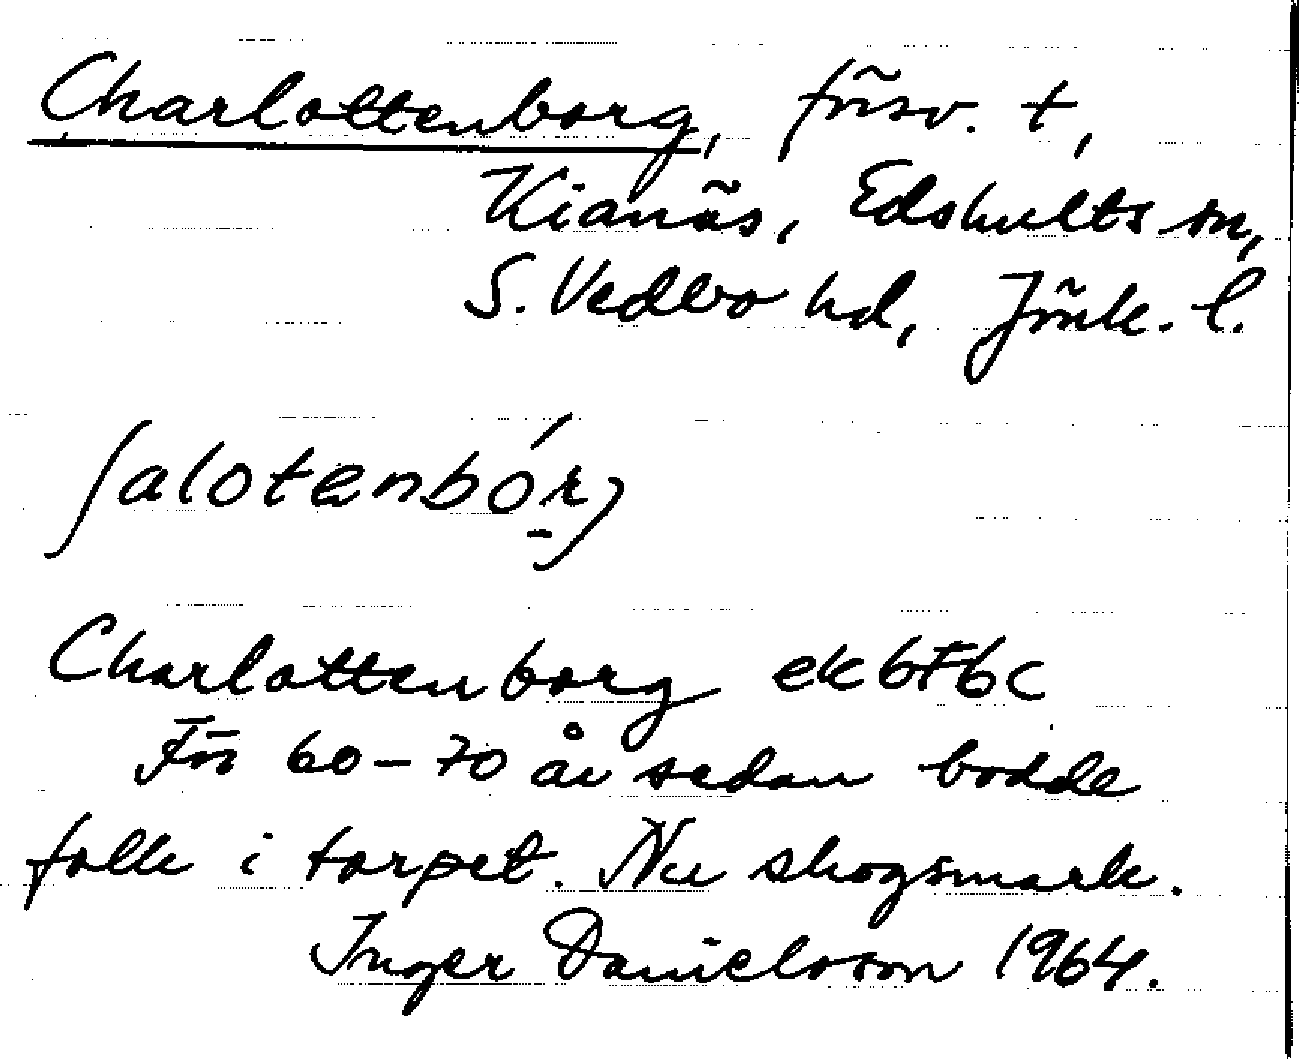 Charlottenborg, försv. t,
Kianäs, Edshults sn,
S. Vedbo hd, Jönk. l.
ʃalotenbór̠j
Charlottenborg ek 6F6c
För 60-70 år sedan bodde
folk i torpet. Nu skogsmark.
Inger Danielsson 1964.